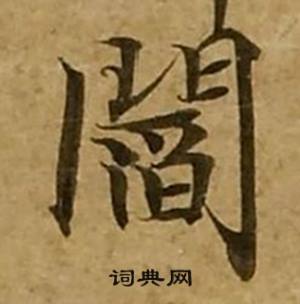 閻
词典网